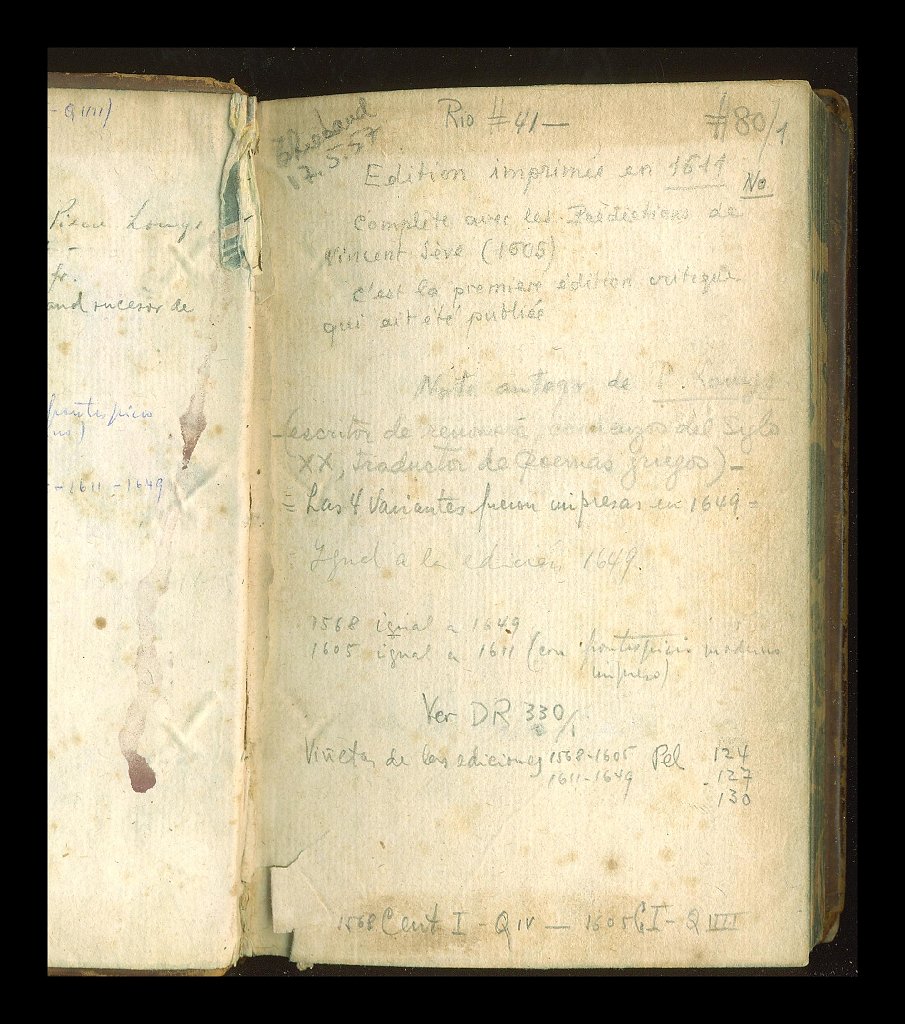 - Q IIII)
Louys
fr.
and sucesor de
frontispicio
- 1611 - 1649
17.5.57
Rio # 41 —
# 80/1
Edition imprimée en 1611
No
Complète avec les Prédictions de
Vincent Sève (1605)
c'est la première édition critique
qui ait été publiée
Note autogr de P. Louys
(escritor de renombre, comienzos del Siglo
XX, traductor de poemas griegos) -
= Las 4 Variantes fueron impresas en 1649 =
Igual a la edición 1649.
1568 igual a 1649
1605 igual a 1611 (con frontispicio moderno
impreso)
Ver DR 330/1
Viñetas de las ediciones 1568-1605 Pel 124
1611-1649 - 127
130
1568 Cent I - Q IV — 1605 C I - Q IIII